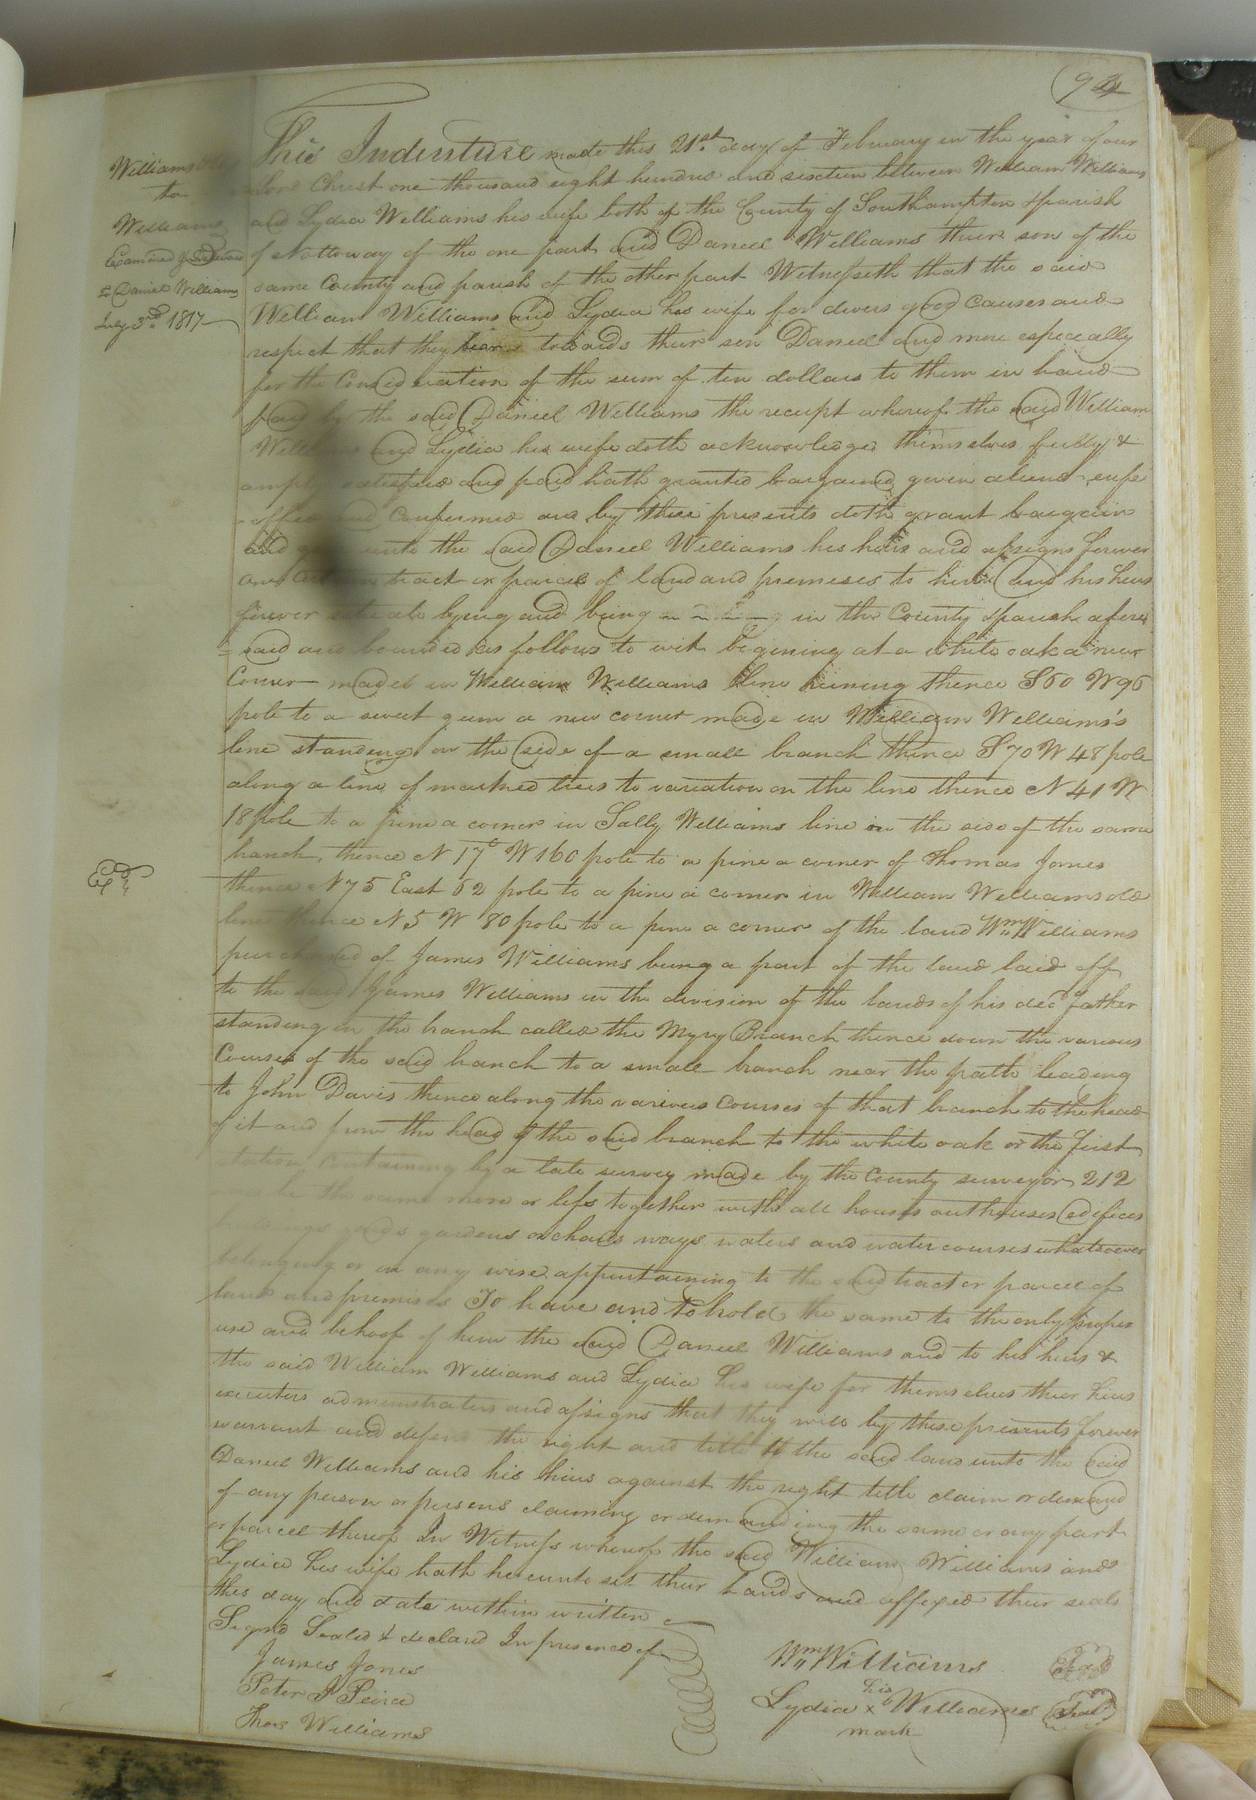 94
Williams
to
Williams
Examined & delivered
to Daniel Williams
July 3rd 1817
This Indenture made this 21st day of February in the year of our
Lord Christ one thousand eight hundred and sixteen between William Williams
and Lydia Williams his wife both of the County of Southampton & parish
of Nottoway of the one part and Daniel Williams their son of the
same County and parish of the other part Witnesseth that the said
William Williams and Lydia his wife for divers good causes and
respect that they bear towards their son Daniel and more especially
for the Consideration of the sum of ten dollars to them in hand
paid by the said Daniel Williams the receipt whereof the said William
Williams and Lydia his wife doth acknowledge themselves fully &
amply satisfied and paid hath granted bargained given aliend enfe
offed and Confirmed and by these presents doth grant bargain
and give unto the said Daniel Williams his heirs and assigns forever
one certain tract or parcel of land and premeses to him and his heirs
forever situate lying and being in the County & parish afore
=said and bounded as follows to wit begining at a white oak a new
Corner made in William Williams line runing thence S60 W96
pole to a sweet gum a new corner made in William Williams's
line standing on the side of a small branch thence S70 W 48 pole
along a line of marked trees to variation on the line thence N 41 W
18 pole to a pine a corner in Sally Williams line on the side of the same
branch, thence N 17° W 160 pole to a pine a corner of Thomas Jones
thence N75 East 62 pole to a pine a corner in William Williams old
line thence N5 W 80 pole to a pine a corner of the land Wm Williams
purchased of James Williams being a part of the land laid off
to the said James Williams in the division of the lands of his decd father
standing in the branch called the Myry Branch thence down the various
Courses of the said branch to a small branch near the path leading
to John Davis thence along the various Courses of that branch to the head
of it and from the head of the said branch to the white oak or the first
station, Containing by a late survey made by the County surveyor 212
acres be the same more or less together with all houses outhouses edifices
buildings yards gardens orchards ways waters and water courses whatsoever
belonging or in any wise appurtaining to the said tract or parcel of
land and premises To have and to hold the same to the only proper
use and behoof of him the said Daniel Williams and to his heirs &
the said William Williams and Lydia his wife for themselves their heirs
executors administrators and assigns that they will by these presents forever
warrant and defend the right and title of the said land unto the said
Daniel Williams and his heirs against the right title claim or demand
of any person or persons claiming or demanding the same or any part
or parcel thereof In Witness whereof the said William Williams and
Lydia his wife hath hereunto set their hands and affixed their seals
this day and date within written
Signd Seald & declard In presence of
James Jones
Peter J Peirce
Thos Williams
Wm Williams Seal
his
Lydia x Williams Seal
mark